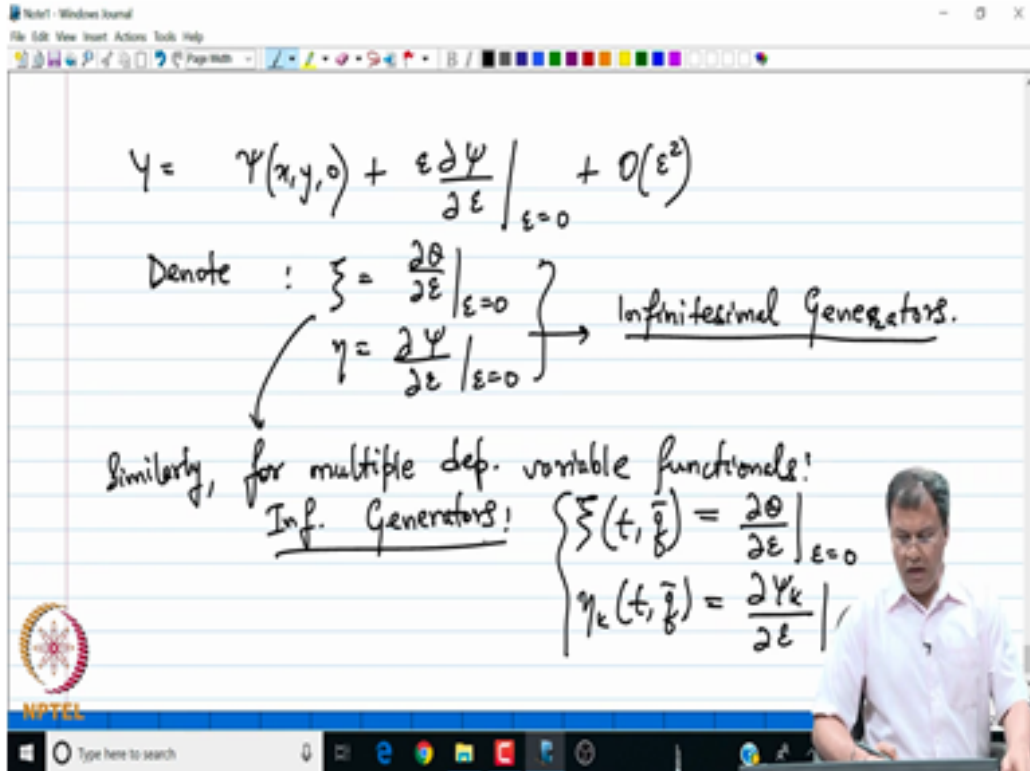 Note1 - Windows Journal
File Edit View Insert Actions Tools Help
Page Width B I
Y = Ψ(x, y, 0) + ε ∂Ψ/∂ε |ε=0 + O(ε²)
Denote : ξ = ∂θ/∂ε |ε=0
η = ∂Ψ/∂ε |ε=0 } → Infinitesimal Generators.
Similarly, for multiple dep. variable functionals:
Inf. Generators: { ξ(t, q̄) = ∂θ/∂ε |ε=0
ηk(t, q̄) = ∂Ψk/∂ε |
NPTEL
Type here to search